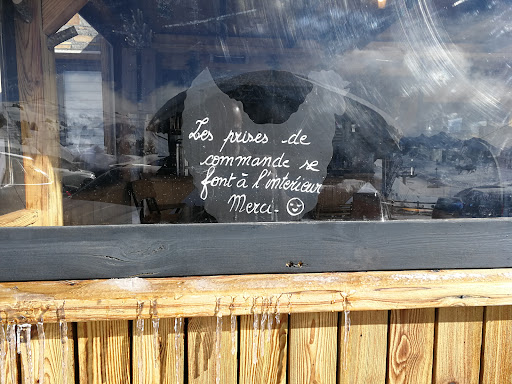 Les prises de
commande se
font à l'interieur
Merci-